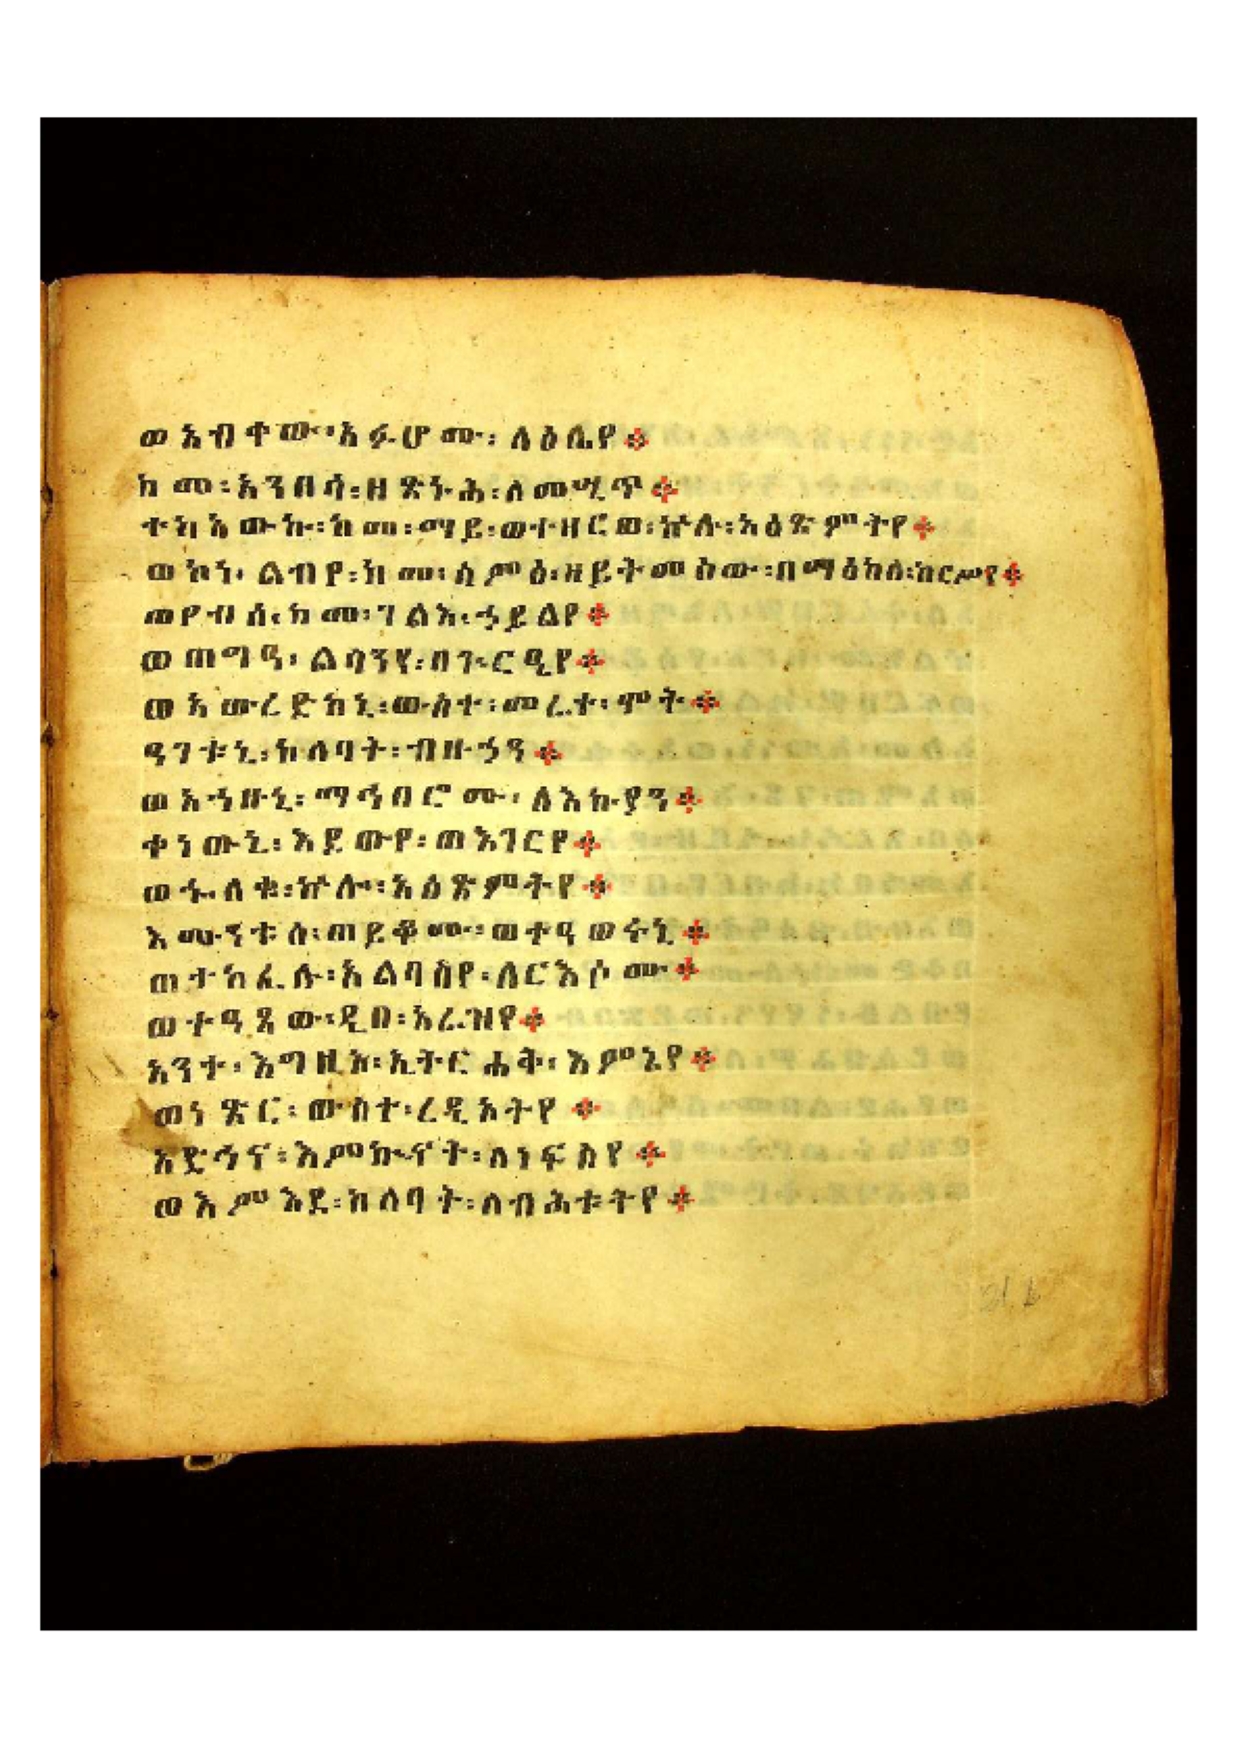 ወአብቀው፡አፉሆሙ፡ላዕሌየ፨
ከመ፡አንበሳ፡ዘጽኑሕ፡ለመሢጥ፨
ተክዕውኩ፡ከመ፡ማይ፡ወተዘርወ፡ኵሉ፡አዕጽምትየ፨
ወኮነ፡ልብየ፡ከመ፡ሰምዕ፡ዘይትመሰው፡በማዕከለ፡ከርሥየ፨
ወየብሰ፡ከመ፡ገልዕ፡ኃይልየ፨
ወጠግዓ፡ልሳንየ፡በጕርዔየ፨
ወአውረድከኒ፡ውስተ፡መሬተ፡ሞት፨
ዓገቱኒ፡ከለባት፡ብዙኃን፨
ወአኀዙኒ፡ማኅበሮሙ፡ለእኩያን፨
ቀነዉኒ፡እደውየ፡ወእገርየ፨
ወኈለቁ፡ኵሎ፡አዕጽምትየ፨
እሙንቱሰ፡ጠይቆሙ፡ወተዐወሩኒ፨
ወተካፈሉ፡አልባስየ፡ለርእሶሙ፨
ወተዓፀው፡ዲበ፡አራዝየ፨
አንተ፡እግዚእ፡ኢትርሐቅ፡እምኔየ፨
ወነጽር፡ውስተ፡ረዲኦትየ፨
አድኅና፡እምኲናት፡ለነፍስየ፨
ወእምእደ፡ከለባት፡ለብሕቱትየ፨